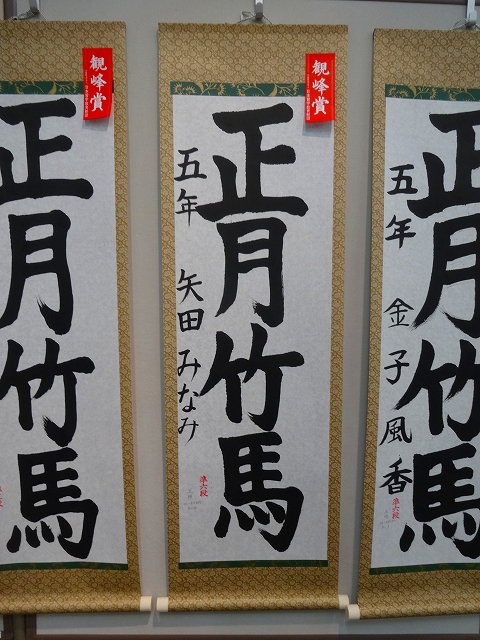 観峰賞
正月竹馬
観峰賞
正月竹馬
五年 矢田みなみ
準六段
正月竹馬
五年 金子風香
準六段